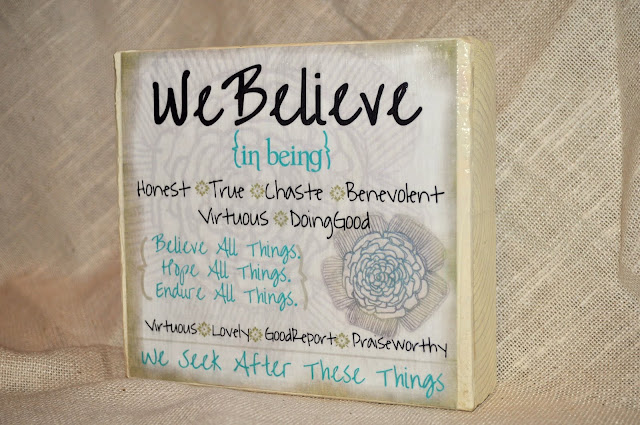 WeBelieve
{in being}
Honest True Chaste Benevolent
Virtuous DoingGood
Believe All Things.
Hope All Things.
Endure All Things.
Virtuous Lovely GoodReport PraiseWorthy
We Seek After These Things